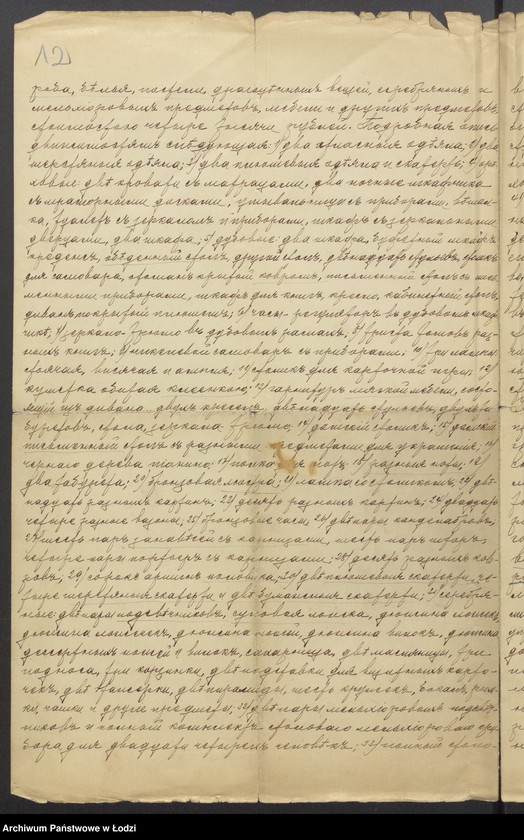 12
роба, бѣлья, постели, драгоцѣнныхъ вещей, серебряныхъ и
мельхіоровыхъ предметовъ, мебели и другихъ предметовъ,
стоимостью четыре тысячи рублей. Подробная опись
движимостямъ слѣдующая: 1) два атласныя одѣяла; 2) два
шерстяныя одѣяла; 3) два плюшевыя одѣяла и скатерть; 4)
двѣ кровати съ матрацами, два ночные шкафчика
съ мраморными досками, умывальникъ съ приборами,
туалетъ съ зеркаломъ и приборами, шкафъ съ зеркальными
дверцами, два шкафа; 5) дубовые: два шкафа, буфетный шкафъ
креденсъ, обѣденный столъ, другой столъ, двѣнадцать стульевъ,
для самовара, крытый ковромъ, письменный столъ съ
менными приборами, шкафъ для книгъ, кресло, кабинетный столъ,
диванъ покрытый плюшемъ; 6) часы - регуляторъ въ дубовомъ
7) зеркало - трюмо въ дубовыхъ рамахъ; 8) триста томовъ раз-
ныхъ книгъ; 9) никелевый самоваръ съ приборами; 10) три лампы:
стоячая, висячая и ; 11) столикъ для карточной игры; 12)
кушетка обитая ; 13) гарнитуръ мягкой мебели, состо-
ящій изъ дивана, двухъ креселъ, двѣнадцати стульевъ, двухъ
буретовъ, стола, зеркала - трюмо; 14) дамскій столикъ; 15) дамскій
письменный столъ съ разными предметами для украшенія; 16)
чернаго дерева піанино; 17) ; 18) разныя ноты; 19)
два табурета; 20) бронзовая люстра; 21) лампа со столикомъ; 22) двѣ-
надцать разныхъ картинъ; 23) десять разныхъ картинъ; 24) двадцать
четыре разные вазоны; 25) бронзовые часы; 26) двѣ пары канделябровъ;
27) шесть паръ занавѣсей съ карнизами, шесть паръ шторъ,
четыре пары портьеръ съ карнизами; 28) десять разныхъ ков-
ровъ; 29) сорокъ аршинъ половика; 30) двѣ плюшевыя скатерти, че-
тыре шерстяныя скатерти и двѣ скатерти; 31) серебря-
ныя: двѣ пары подсвѣчниковъ, суповая ложка, дюжина ложекъ,
дюжина ложечекъ, дюжина ножей, дюжина вилокъ, дюжина
десертныхъ ножей и вилокъ, сахарница, двѣ масляницы, три
подноса, три корзинки, двѣ подставки для визитныхъ карто-
чекъ, двѣ , двѣ пирамиды, шесть кружекъ, бокалъ,
чашки и другіе предметы; 32) двѣ пары мельхіоровыхъ подсвѣч-
никовъ и полный комплектъ столоваго мельхіороваго при-
бора для двадцати четырехъ человѣкъ; 33) полный столо-
Archiwum Państwowe w Łodzi